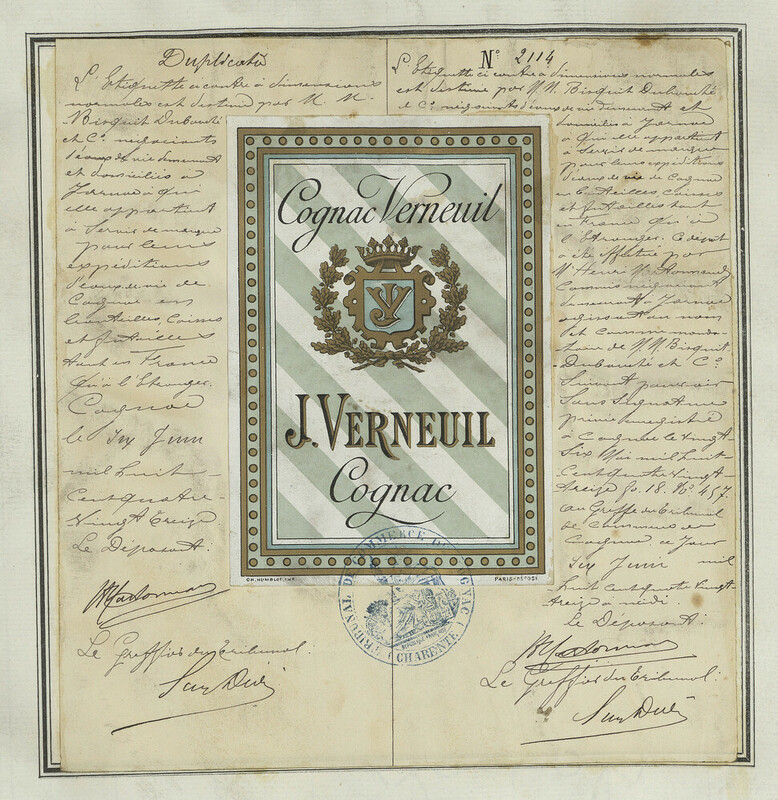 Duplicata
L'Etiquette ci contre à dimensions
normales est destinée par M. M.
Bisquit Dubouché
et Cie négociants
d'eaux de vie demeurant
et domiciliés à
Jarnac à qui
elle appartient
à servir de marque
pour leurs
expéditions
d'eaux de vie de
Cognac en
bouteilles, caisses
et futailles
tant en France
qu'à l'Etranger.
Cognac
le six Juin
mil huit
cent quatre-
vingt treize.
Le Déposant.
Le Greffier du Tribunal.
No 2114
L'Etiquette ci contre à dimensions normales
est destinée par M. M. Bisquit Dubouché
et Cie négociants d'eaux de vie demeurant et
domiciliés à Jarnac
à qui elle appartient
à servir de marque
pour leurs expéditions
d'eaux de vie de Cognac
en bouteilles, caisses
et futailles tant
en France qu'à
l'Etranger. Ce dépôt
a été effectué par
M. Henri
demeurant à Jarnac
agissant au nom
et comme mandataire
de M. M. Bisquit-
Dubouché et Cie
suivant pouvoir
sous signature
privée enregistré
à Cognac le vingt-
six Mai mil huit
cent quatre vingt
treize fo. 18. No 457.
au Greffe du Tribunal
de Commerce de
Cognac ce jour
six Juin mil
huit cent quatre vingt-
treize à midi.
Le Déposant.
Le Greffier du Tribunal.
Cognac Verneuil
JV
J. VERNEUIL
Cognac
CH. HUMBLOT, IMP.
PARIS
TRIBUNAL DE COMMERCE DE COGNAC (CHARENTE)